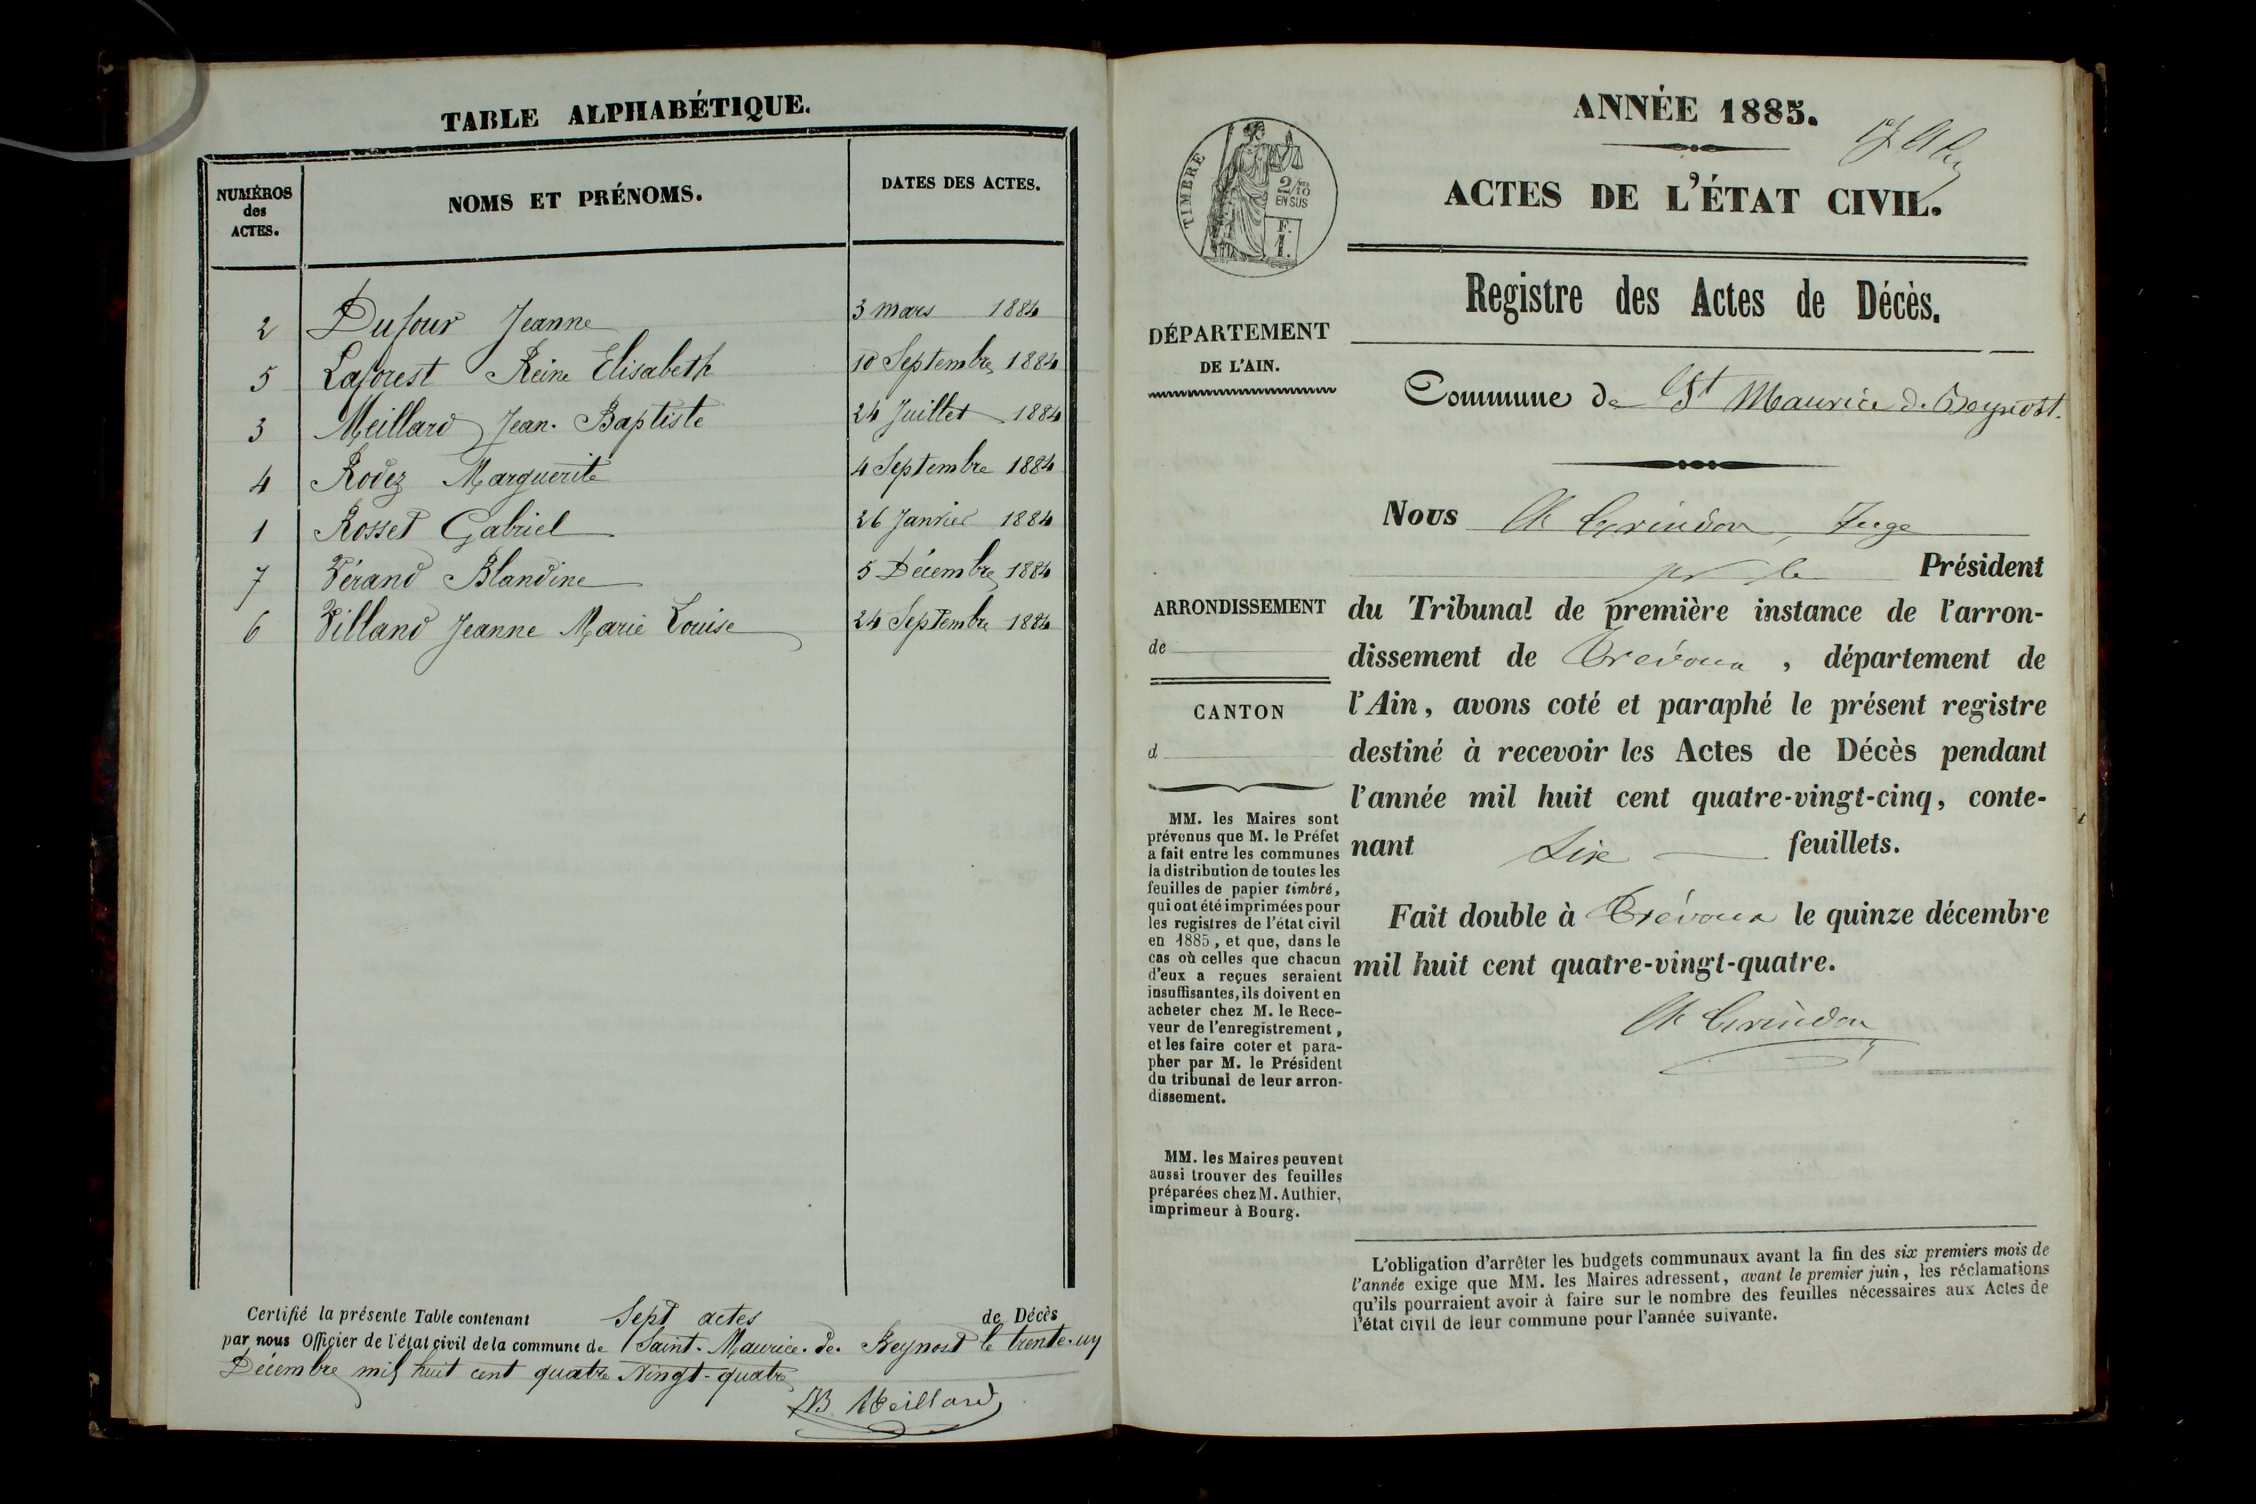 TABLE ALPHABÉTIQUE.
NUMÉROS
des
ACTES.
NOMS ET PRÉNOMS.
DATES DES ACTES.
2 Dufour Jeanne 3 mars 1884
5 Laforest Reine Elisabeth 10 Septembre 1884
3 Meillard Jean-Baptiste 24 Juillet 1884
4 Rodez Marguerite 4 Septembre 1884
1 Rosset Gabriel 26 Janvier 1884
7 Vérand Blandine 5 Décembre 1884
6 Villand Jeanne Marie Louise 24 Septembre 1884
Certifié la présente Table contenant Sept actes de Décès
par nous Officier de l'état civil de la commune de Saint-Maurice-de-Beynost le trente-un
Décembre mil huit cent quatre Vingt-quatre
JB Meillard
ANNÉE 1885.
ACTES DE L'ÉTAT CIVIL.
TIMBRE
2/10
EN SUS
F.
1.
Registre des Actes de Décès.
DÉPARTEMENT
DE L'AIN.
Commune de St Maurice de Beynost.
Nous Ch Grindon, Juge
pr le Président
ARRONDISSEMENT
de
CANTON
d
du Tribunal de première instance de l'arron-
dissement de Trévoux, département de
l'Ain, avons coté et paraphé le présent registre
destiné à recevoir les Actes de Décès pendant
l'année mil huit cent quatre-vingt-cinq, conte-
nant Six feuillets.
Fait double à Trévoux le quinze décembre
mil huit cent quatre-vingt-quatre.
Ch Grindon
MM. les Maires sont
prévenus que M. le Préfet
a fait entre les communes
la distribution de toutes les
feuilles de papier timbré,
qui ont été imprimées pour
les registres de l'état civil
en 1885, et que, dans le
cas où celles que chacun
d'eux a reçues seraient
insuffisantes, ils doivent en
acheter chez M. le Rece-
veur de l'enregistrement,
et les faire coter et para-
pher par M. le Président
du tribunal de leur arron-
dissement.
MM. les Maires peuvent
aussi trouver des feuilles
préparées chez M. Authier,
imprimeur à Bourg.
L'obligation d'arrêter les budgets communaux avant la fin des six premiers mois de
l'année exige que MM. les Maires adressent, avant le premier juin, les réclamations
qu'ils pourraient avoir à faire sur le nombre des feuilles nécessaires aux Actes de
l'état civil de leur commune pour l'année suivante.